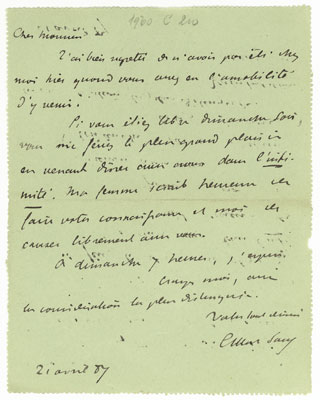 1900 C 210
Cher Monsieur
J'ai bien regretté de n'avoir pas été chez
moi hier quand vous avez eu l'amabilité
d'y venir.
Si vous étiez libre dimanche soir,
vous me feriez le plus grand plaisir
en venant dîner avec nous dans l'inti-
mité. Ma femme serait heureuse de
faire votre connaissance et moi de
causer librement avec vous.
A dimanche 7 heures, j'espère
Croyez moi, avec
la considération la plus distinguée.
Votre tout dévoué
21 avril 87